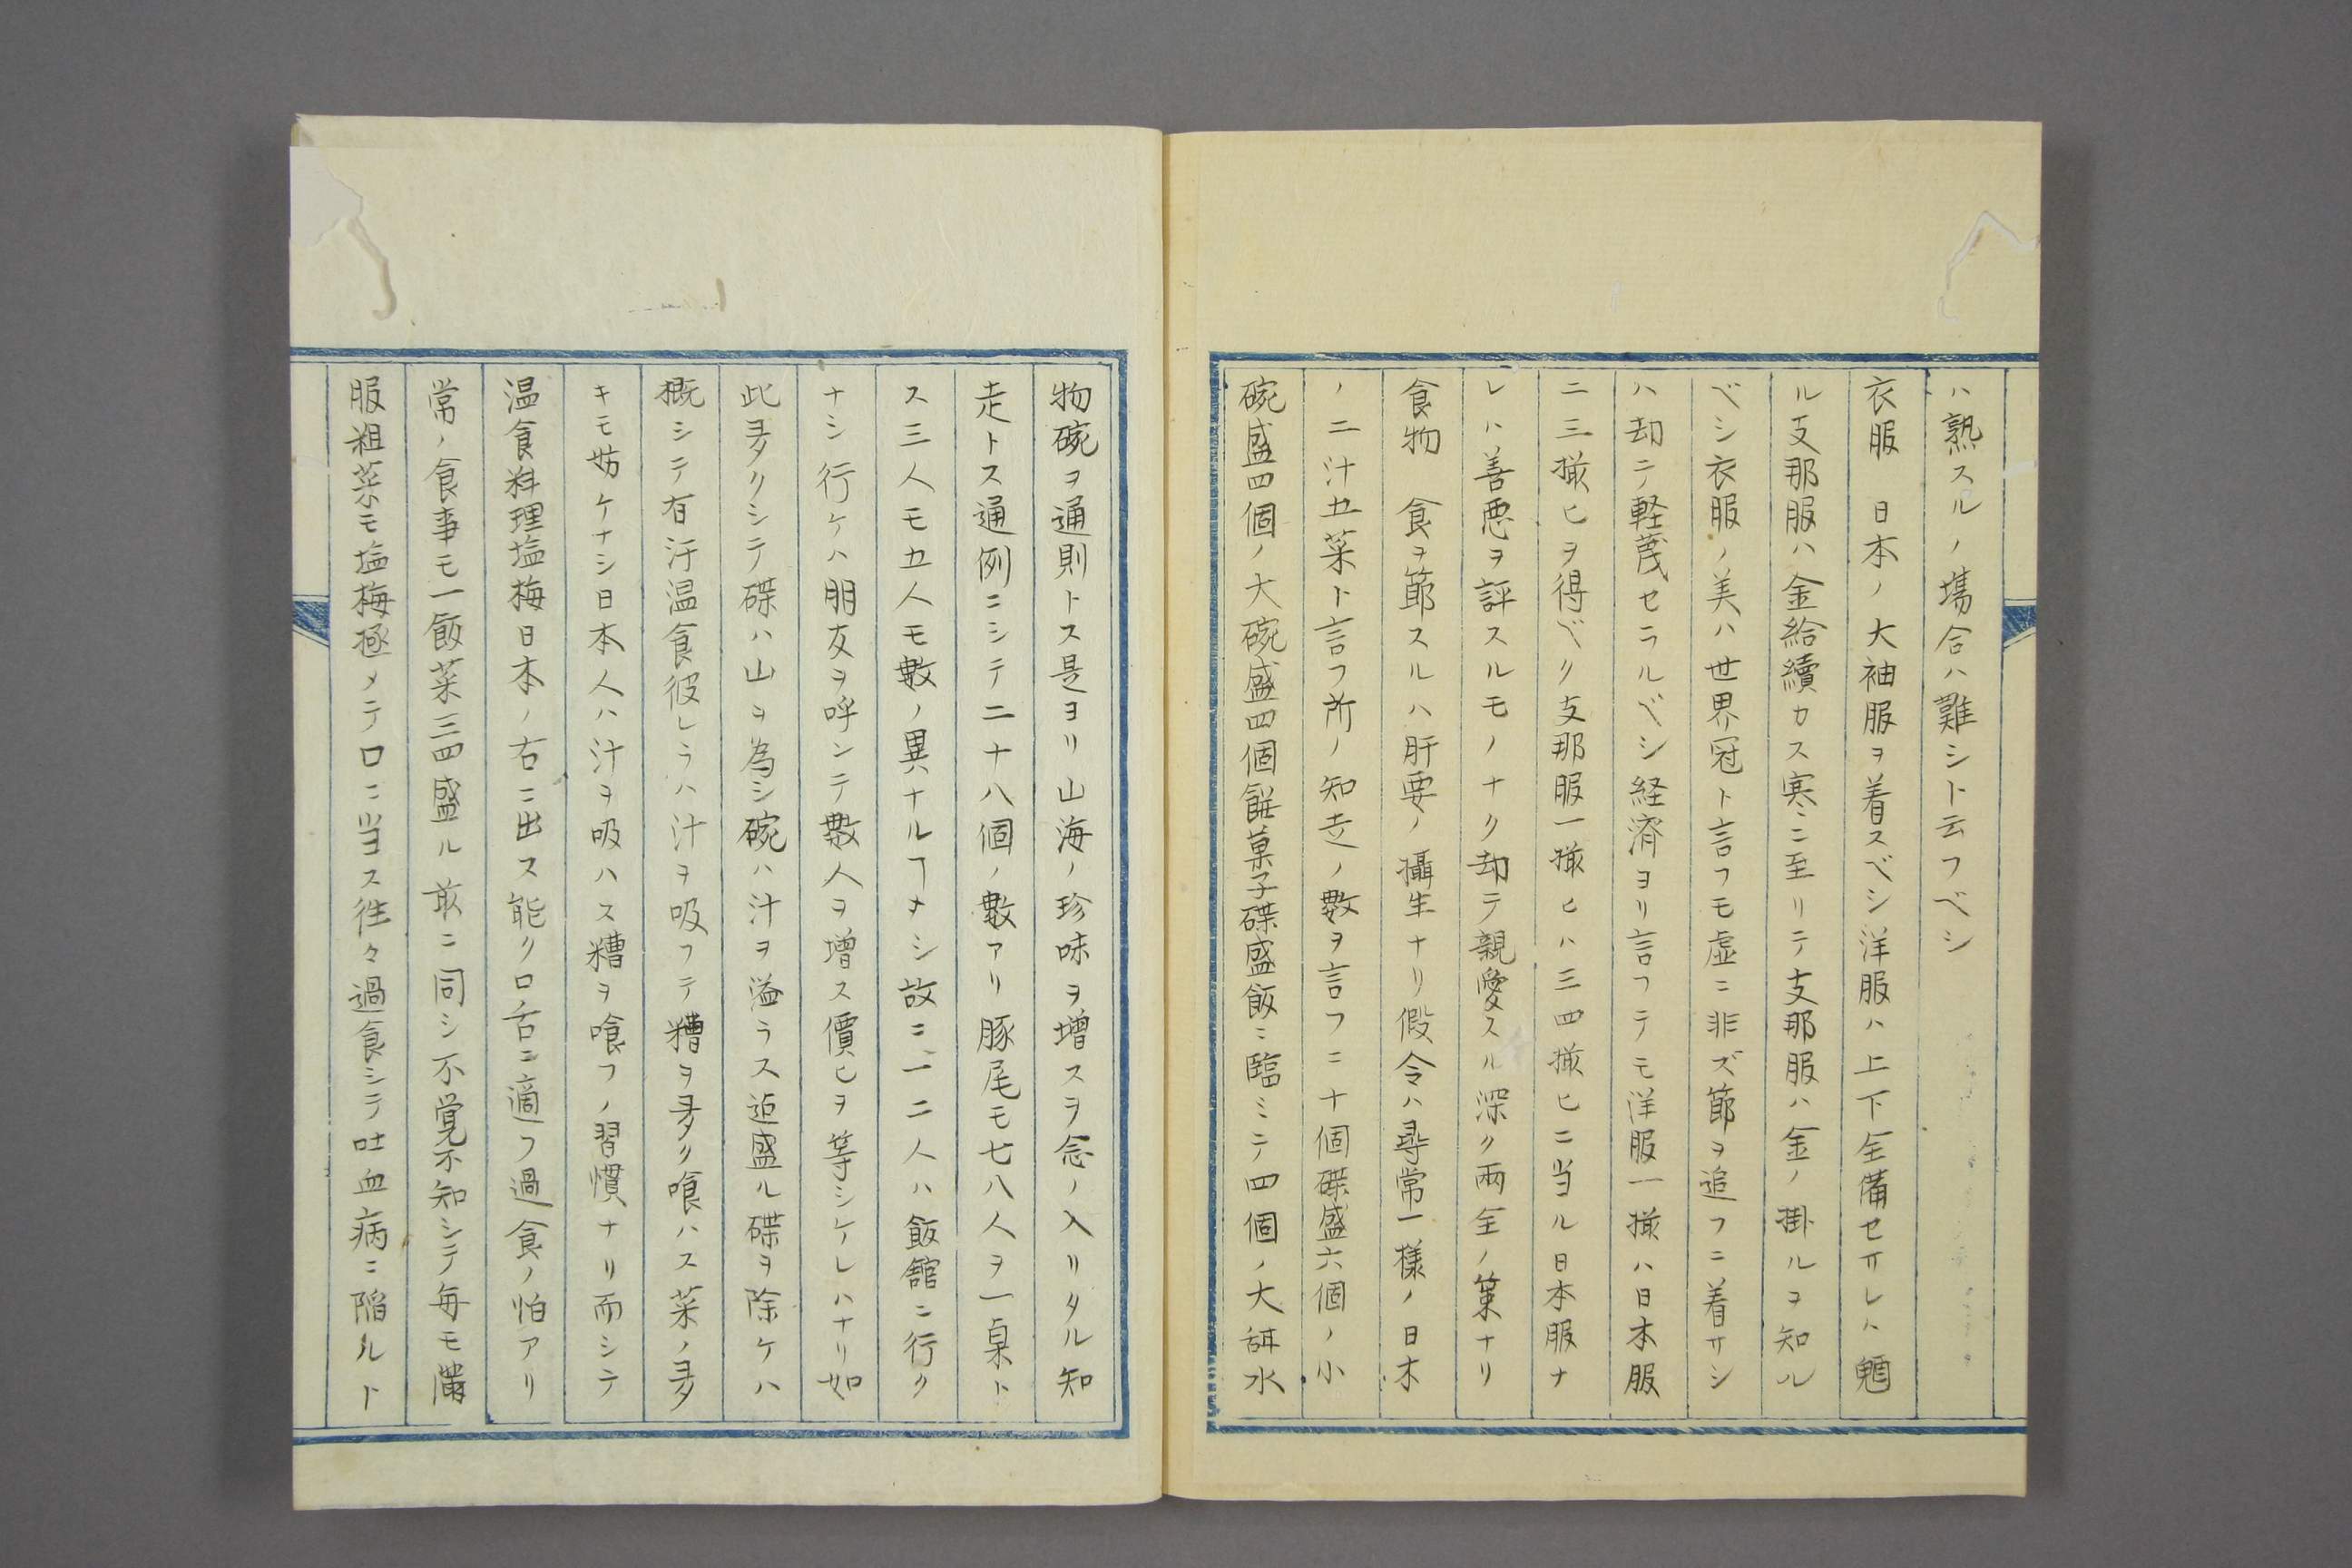 ハ熟スルノ塲合ハ難シト云フベシ
衣服 日本ノ大袖服ヲ着スベシ洋服ハ上下全備セサレハ
ル支那服ハ金給續カス寒ニ至リテ支那服ハ金ノ掛ルヲ知ル
ベシ衣服ノ美ハ世界冠ト言フモ虚ニ非ズ節ヲ追フニ着サシ
ハ却テ軽蔑セラルベシ経済ヨリ言フテモ洋服一揃ハ日本服
二三揃ヒヲ得ベク支那服一揃ヒハ三四揃ヒニ当ル日本服ナ
レハ善悪ヲ評スルモノナク却テ親愛スル深ク両全ノ策ナリ
食物 食ヲ節スルハ肝要ノ攝生ナリ假令ハ尋常一樣ノ日本
ノ二汁五菜ト言フ所ノ知走ノ數ヲ言フニ十個碟盛六個ノ小
碗盛四個ノ大碗盛四個餅菓子碟盛飯ニ臨ミテ四個ノ大餌水
物碗ヲ通則トス是ヨリ山海ノ珍味ヲ增スヲ念ノ入リタル知
走トス通例ニシテ二十八個ノ數アリ豚尾モ七八人ヲ一桌ト
ス三人モ五人モ數ノ異ナルヿナシ故ニ一二人ハ飯舘ニ行ク
ナシ行ケハ朋友ヲ呼ンテ數人ヲ增ス價ヒヲ等シケレハナリ如
此多クシテ碟ハ山ヲ為シ碗ハ汁ヲ溢ラス迠盛ル碟ヲ除ケハ
概シテ有汁温食彼レラハ汁ヲ吸フテ糟ヲ多ク喰ハス菜ノ多
キモ妨ケナシ日本人ハ汁ヲ吸ハス糟ヲ喰フノ習慣ナリ而シテ
温食料理塩梅日本ノ右ニ出ス能ク口舌ニ適フ過食ノ怕アリ
常ノ食事モ一飯菜三四盛ル敢ニ同シ不覚不知シテ毎モ滿
服粗菜モ塩梅極メテ口ニ当ス往々過食シテ吐血病ニ陥ルト